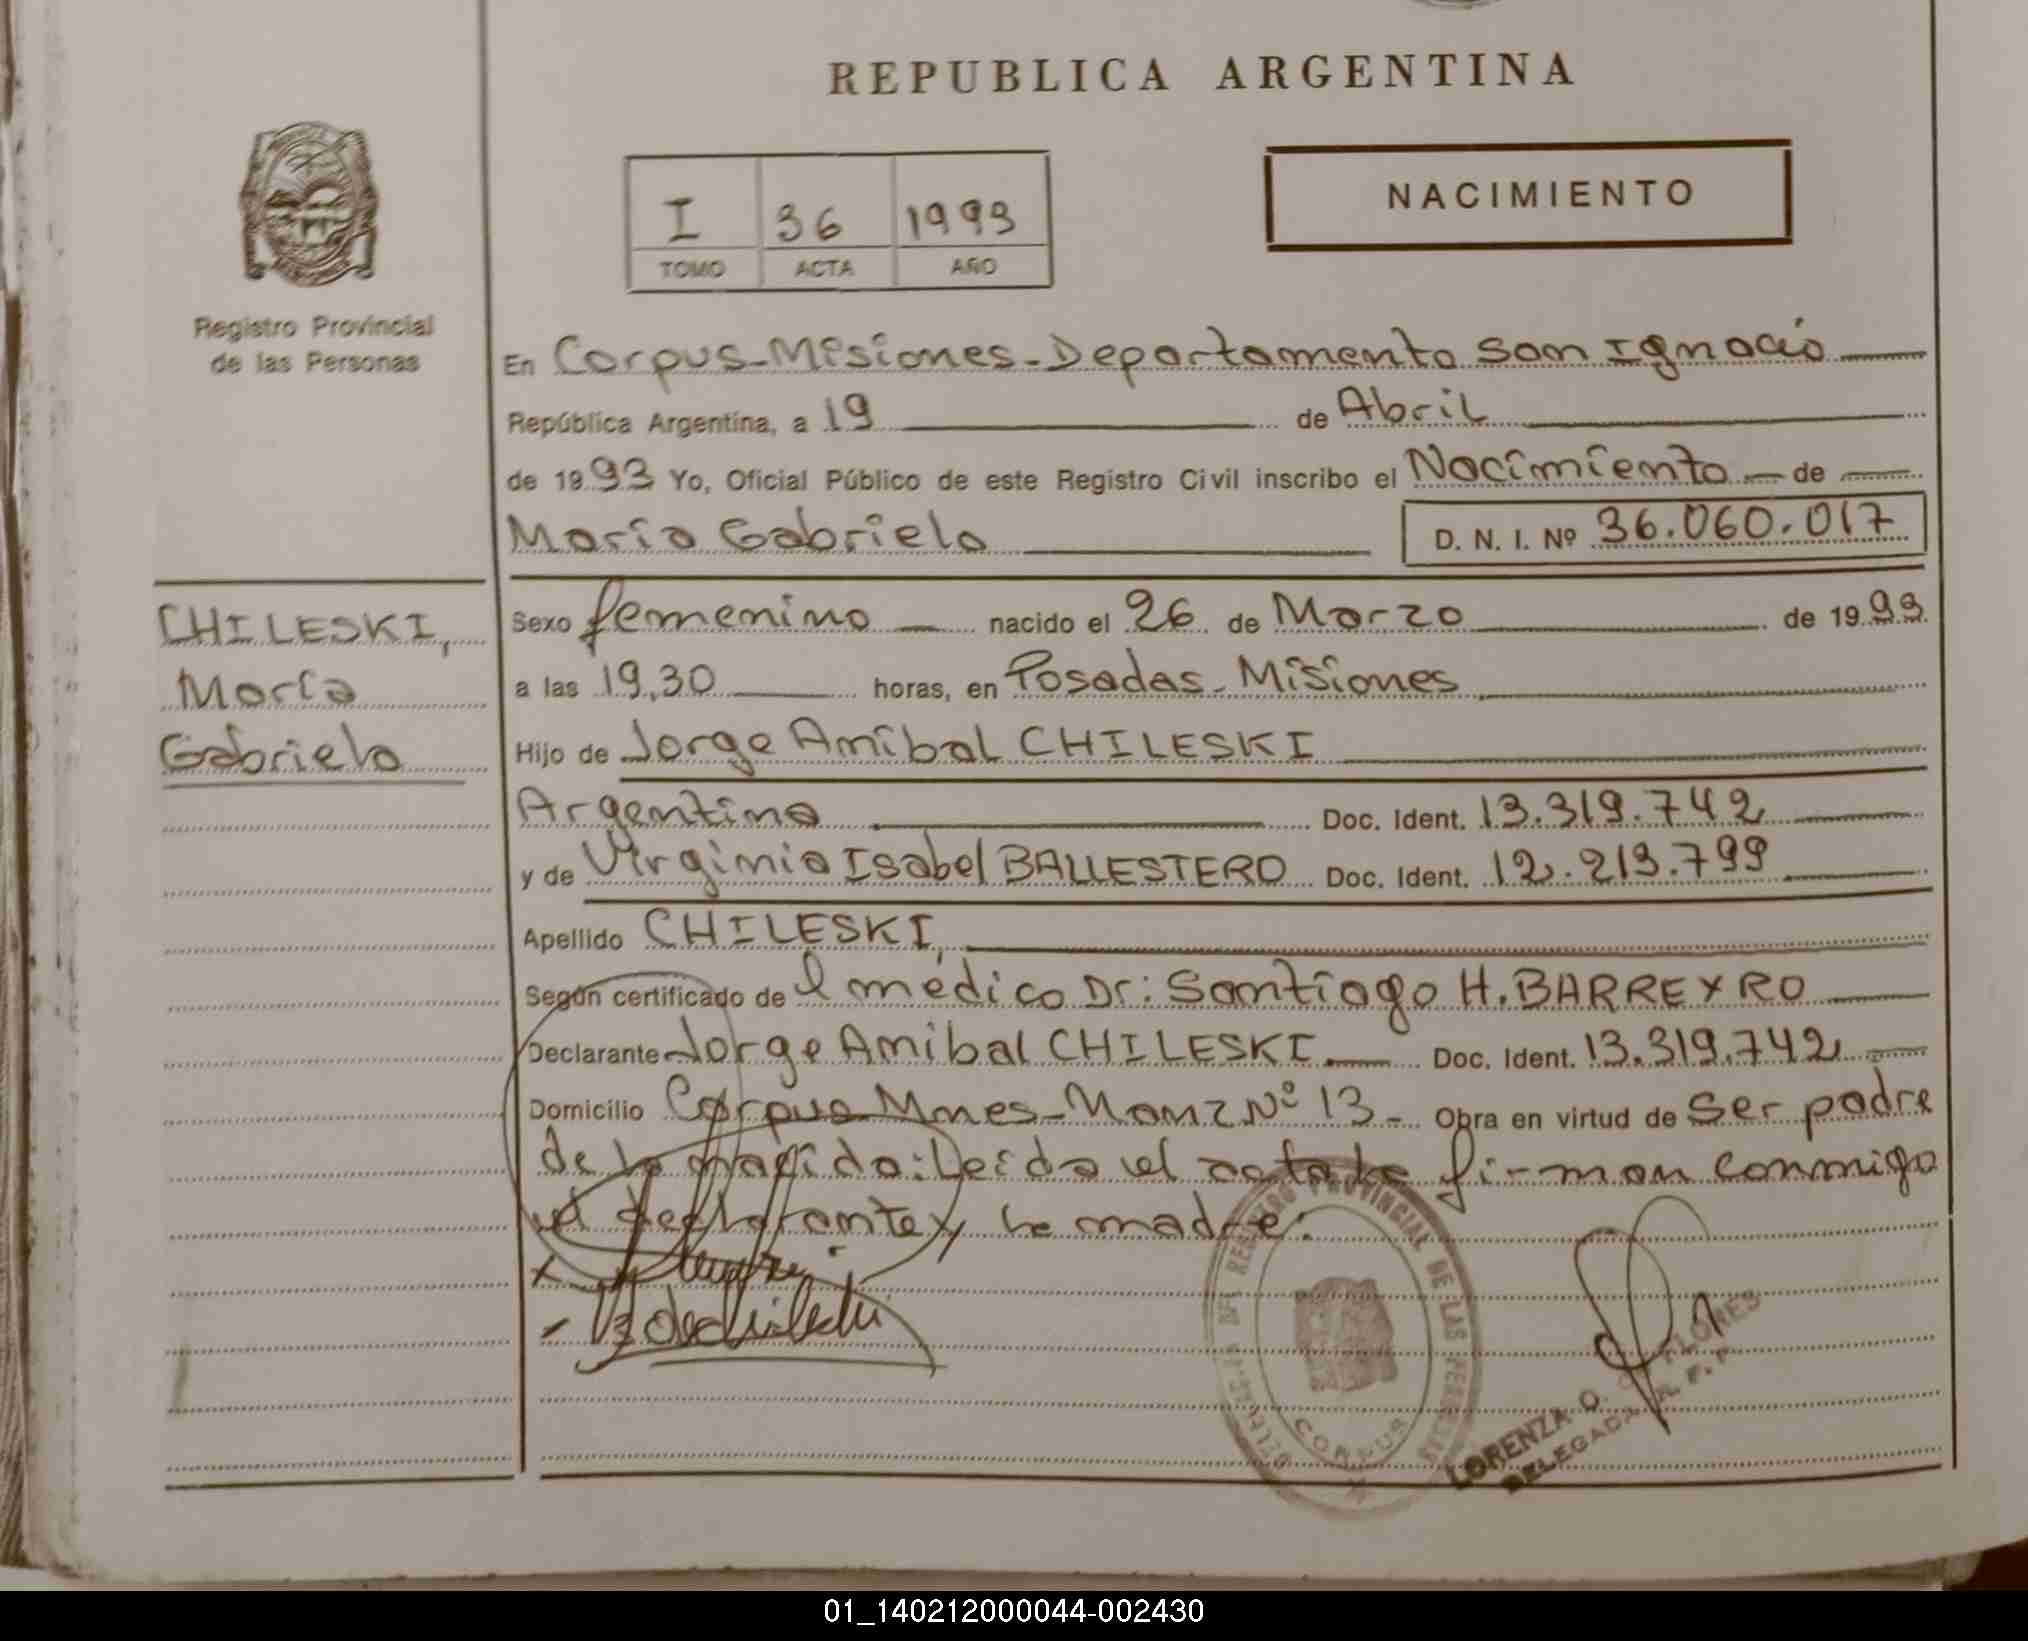 REPUBLICA ARGENTINA
I 36 1993
TOMO ACTA AÑO
NACIMIENTO
Registro Provincial
de las Personas
En Corpus-Misiones-Departamento San Ignacio
República Argentina, a 19 de Abril
de 1993 Yo, Oficial Público de este Registro Civil inscribo el Nacimiento de
María Gabriela D. N. I. Nº 36.060.017
CHILESKI,
María
Gabriela
Sexo femenino nacido el 26 de Marzo de 1993
a las 19,30 horas, en Posadas-Misiones
Hijo de Jorge Anibal CHILESKI
Argentino Doc. Ident. 13.319.742
y de Virginia Isabel BALLESTERO Doc. Ident. 12.213.799
Apellido CHILESKI,
Según certificado de l médico Dr: Santiago H. BARREYRO
Declarante Jorge Anibal CHILESKI. Doc. Ident. 13.319.742
Domicilio Corpus Mnes-Manz Nº 13- Obra en virtud de Ser padre
de la nacida: Leida el acta la fi-man conmigo
el declarante y la madre.
REGISTRO PROVINCIAL DE LAS PERSONAS
CORPUS
LORENZA O. FLORES
DELEGADA R. P. P.
01_140212000044-002430